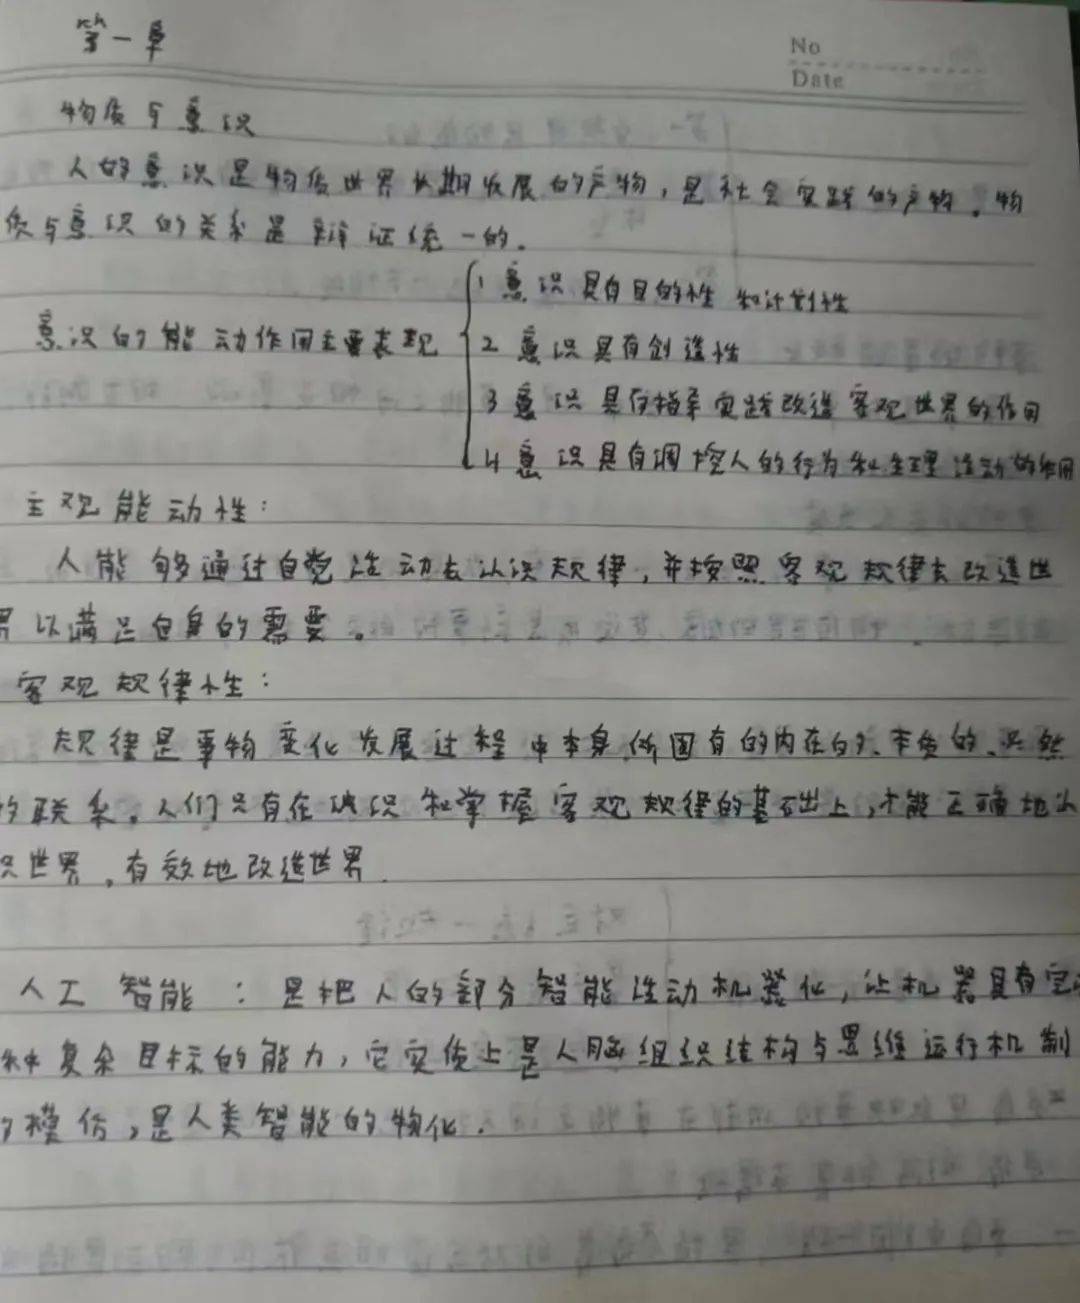 第一章
No
Date
物质与意识
人的意识是物质世界长期发展的产物，是社会实践的产物。物
质与意识的关系是辩证统一的。
意识的能动作用主要表现
1 意识具有目的性 和计划性
2 意识具有创造性
3 意识具有指导实践改造客观世界的作用
4 意识具有调控人的行为和生理活动的作用
主观能动性：
人能够通过自觉活动去认识规律，并按照客观规律去改造世
界以满足自身的需要。
客观规律性：
规律是事物变化发展过程中本身所固有的内在的、本质的、必然
的联系。人们只有在认识和掌握客观规律的基础上，才能正确地认
识世界，有效地改造世界.
人工智能：是把人的部分智能活动机器化，让机器具有完
种复杂目标的能力，它实质上是人脑组织结构与思维运行机制
的模仿，是人类智能的物化.